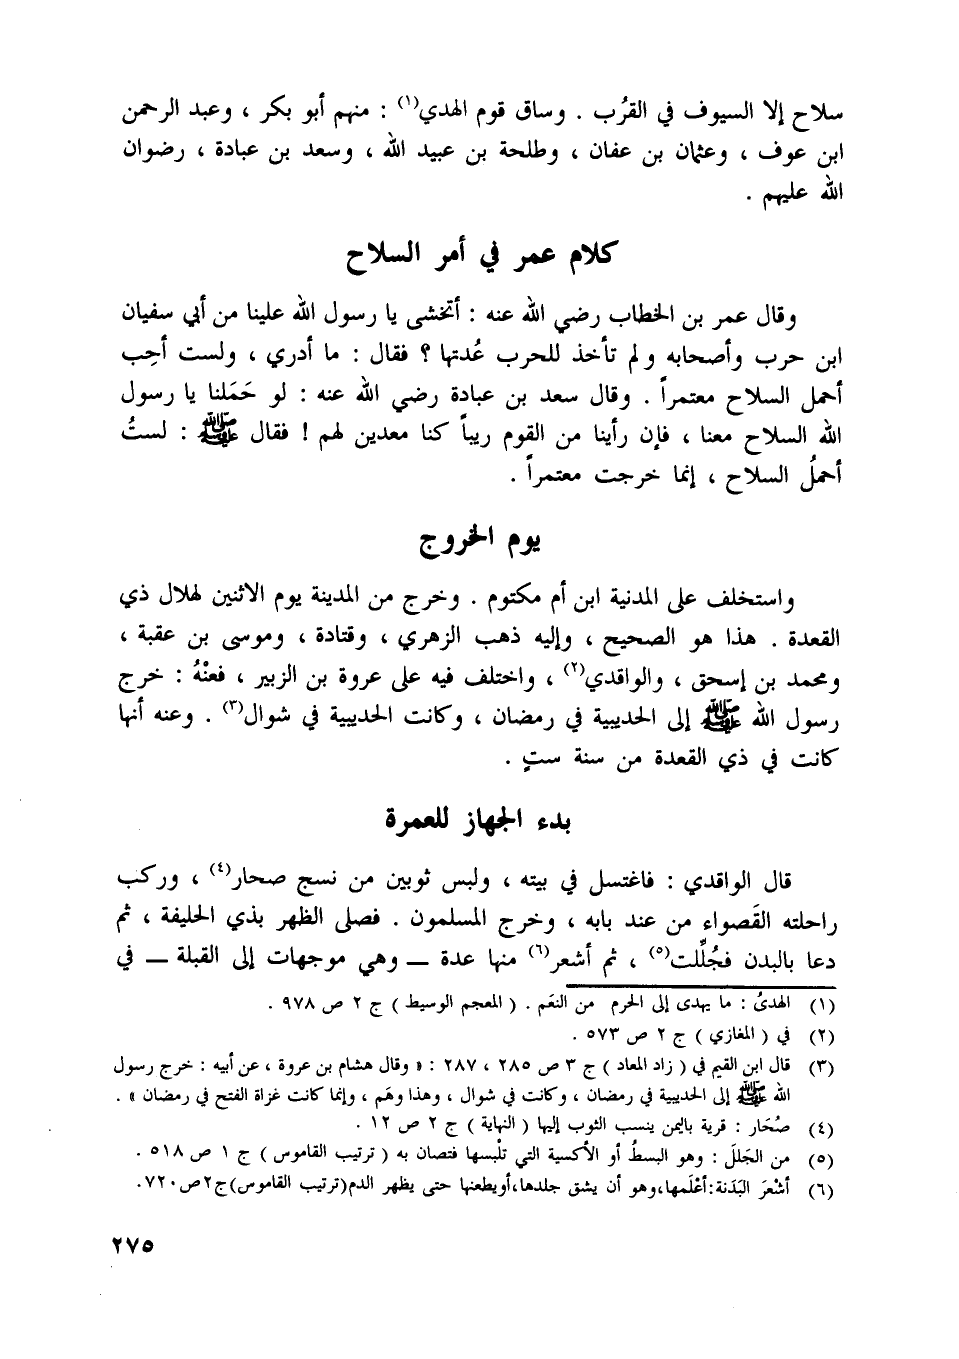 سلاح إلا السيوف في القرُب . وساق قوم الهدي(١) : منهم أبو بكر ، وعبد الرحمن
ابن عوف ، وعثمان بن عفان ، وطلحة بن عبيد الله ، وسعد بن عبادة ، رضوان
الله عليهم .
كلام عمر في أمر السلاح
وقال عمر بن الخطاب رضي الله عنه : أتخشى يا رسول الله علينا من أبي سفيان
ابن حرب وأصحابه ولم تأخذ للحرب عُدتها ؟ فقال : ما أدري ، ولست أحِب
أحمل السلاح معتمراً . وقال سعد بن عبادة رضي الله عنه : لو حَمَلنا يا رسول
الله السلاح معنا ، فإن رأينا من القوم ريباً كنا معدين لهم ! فقال ﷺ : لستُ
أحملُ السلاح ، إنما خرجت معتمراً .
يوم الخروج
واستخلف على المدنية ابن أم مكتوم . وخرج من المدينة يوم الاثنين لهلال ذي
القعدة . هذا هو الصحيح ، وإليه ذهب الزهري ، وقتادة ، وموسى بن عقبة ،
ومحمد بن إسحق ، والواقدي(٢) ، واختلف فيه على عروة بن الزبير ، فعنْهُ : خرج
رسول الله ﷺ إلى الحديبية في رمضان ، وكانت الحديبية في شوال(٣) . وعنه أنها
كانت في ذي القعدة من سنة ستٍ .
بدء الجهاز للعمرة
قال الواقدي : فاغتسل في بيته ، ولبس ثوبين من نسج صحار(٤) ، وركب
راحلته القَصواء من عند بابه ، وخرج المسلمون . فصلى الظهر بذي الحليفة ، ثم
دعا بالبدن فجُلِّلت(٥) ، ثم أشعر(٦) منها عدة ــ وهي موجهات إلى القبلة ــ في
(١) الهديُ : ما يهدى إلى الحرم من النعَم . ( المعجم الوسيط ) ج ٢ ص ٩٧٨ .
(٢) في ( المغازي ) ج ٢ ص ٥٧٣ .
(٣) قال ابن القيم في ( زاد المعاد ) ج ٣ ص ٢٨٥ ، ٢٨٧ : « وقال هشام بن عروة ، عن أبيه : خرج رسول
الله ﷺ إلى الحديبية في رمضان ، وكانت في شوال ، وهذا وهَم ، وإنما كانت غزاة الفتح في رمضان » .
(٤) صُحَار : قرية باليمن ينسب الثوب إليها ( النهاية ) ج ٢ ص ١٢ .
(٥) من الجَللَ : وهو البسطُ أو الأكسية التي تلْبسها فتصان به ( ترتيب القاموس ) ج ١ ص ٥١٨ .
(٦) أشْعرَ البَدَنة:أعْلَمها،وهو أن يشق جلدها،أويطعنها حتى يظهر الدم(ترتيب القاموس)ج٢ص٧٢٠.
٢٧٥